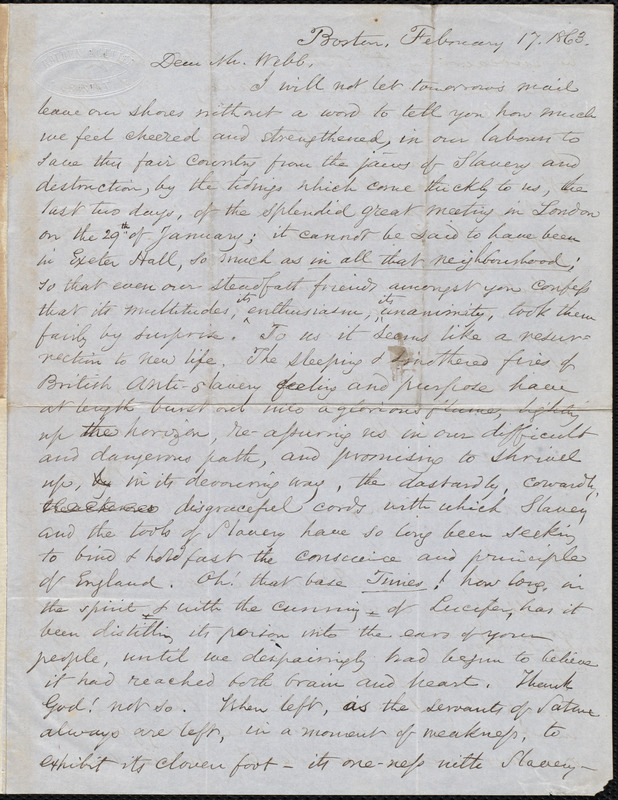 Boston, February 17. 1863.
Dear Mr. Webb,
I will not let tomorrows mail
leave our shores without a word to tell you how much
we feel cheered and strengthened, in our labours to
save this fair country from the jaws of Slavery and
destruction, by the tidings which come thickly to us, the
last two days, of the splendid great meeting in London
on the 29th of January; it cannot be said to have been
in Exeter Hall, so much as in all that neighbourhood;
so that even our steadfast friends amongst you confess
that its multitudes, its enthusiasm, its unanimity, took them
fairly by surprise. To us it seems like a resur=
rection to new life. The sleeping & smothered fires of
British Anti-Slavery feeling and purpose have
at length burst out into a glorious flame, lighting
up the horizon, re-assuring us in our difficult
and dangerous path, and promising to shrivel
up, in its devouring way, the dastardly, cowardly,
disgraceful cords with which Slavery
and the tools of Slavery have so long been seeking
to bind & hold fast the conscience and principle
of England. Oh! that base Times! how long, in
the spirit & with the cunning of Lucifer, has it
been distilling its poison into the ears of your
people, until we despairingly had begun to believe
it had reached both brain and heart. Thank
God! not so. When left, as the servants of Satan
always are left, in a moment of weakness, to
exhibit its cloven foot - its one-ness with Slavery -